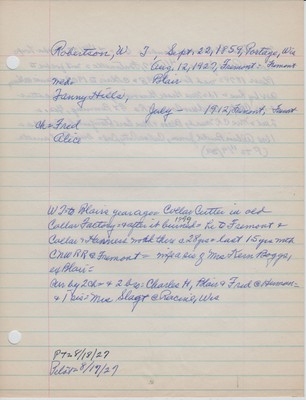 Robertson, W. T, Sept. 22, 1859, Portage, Wis
Aug. 12, 1927, Fremont = Fremont
med= Blair
Fanny Hills,
July - 1912, Fremont,
ch = Fred
Alice
W T @ Blair years ago Collar Cutter in old
Collar Factory + after it burned = 1899 to Fremont &
Collar + Harness work there 28 yrs = last 15 yrs with
CNWRR @ Fremont =
ex Blair =
sur by 2 ch = & 2 bro = Charles H, Blair & Fred @
& 1 sis = Mrs @ Racine, Wis
PT = 8/18/27
Pilot = 8/17/27